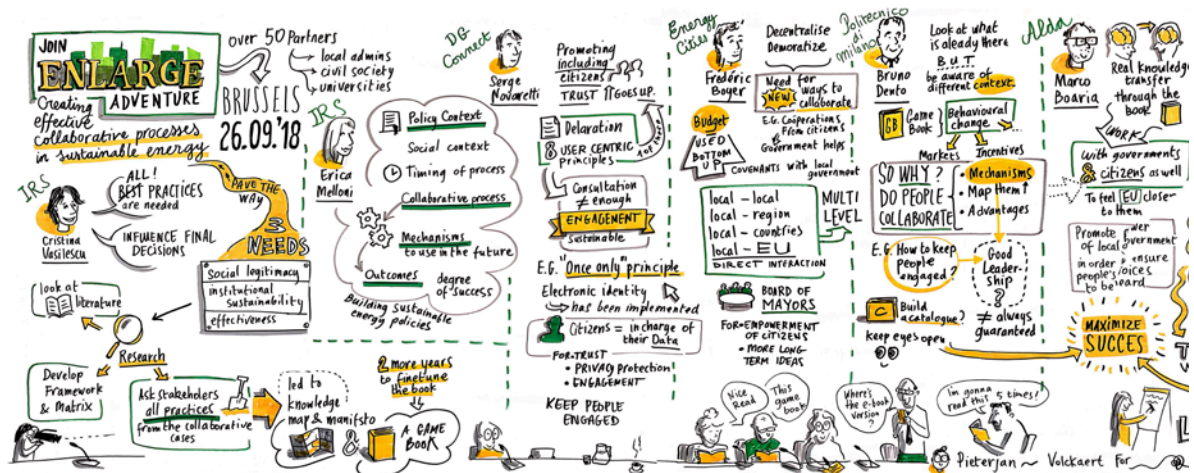 JOIN
ENLARGE
ADVENTURE
Creating
effective
collaborative processes
in sustainable energy
over 50 Partners
local admins
civil society
universities
BRUSSELS
26.09.'18
IRS
Cristina
Vasilescu
ALL!
BEST PRACTICES
are needed
INFLUENCE FINAL
DECISIONS
PAVE THE
WAY
3
NEEDS
Social legitimacy
institutional
sustainability
effectiveness
look at
literature
Research
Develop
Framework
& Matrix
Ask stakeholders
all practices
from the collaborative
cases
led to
knowledge
map & manifsto
&
A GAME
BOOK
2 more years
to finetune
the book
IRS
Erica
Melloni
Policy Context
Social context
Timing of process
Collaborative process
Mechanisms
to use in the future
Outcomes
degree
of success
Building sustainable
energy policies
DG
Connect
Serge
Novaretti
Promoting
including
citizens
TRUST GOES UP.
Delaration
8 USER CENTRIC
principles
Consultation
≠ enough
ENGAGEMENT
sustainable
E.G. "Once only" principle
Electronic identity
has been implemented
Citizens = in charge of
their Data
FOR TRUST
• PRIVACY Protection
• ENGAGEMENT
KEEP PEOPLE
ENGAGED
Energy
Cities
Frederic
Boyer
Decentralise
Demoratize
Need for
NEW ways to
collaborate
E.G. Cooperations
From citizens
&
Government helps
Budget
USED
BOTTOM
UP
COVENANTS with local
government
local - local
local - region
local - countries
local - EU
DIRECT INTERACTION
MULTI
LEVEL
BOARD OF
MAYORS
FOR EMPOWERMENT
OF CITIZENS
• MORE LONG
TERM IDEAS
Politecnico
di
Milano
Bruno
Dento
Look at what
is aleady there
BUT
be aware of
different context.
GB
Game
Book
Behavioural
change
Markets
Incentives
SO WHY?
DO PEOPLE
COLLABORATE
• Mechanisms
• Map them
• Advantages
E.G. How to keep
people
engaged?
Good
Leader-
ship
?
≠ always
guaranteed
C
Build
a catalogue?
Keep eyes open
Alda
Marco
Boaria
Real Knowledge
transfer
through the
book
WORK
with governments
& citizens as well
To feel EU closer
to them
Promote
of local government
in order ensure
people's voices
to be
MAXIMIZE
SUCCES
Nice
Read
This
game
book
Where's
the e-book
version?
I'm gonna
read this 5 times!
Pieterjan ~ Volckaert For